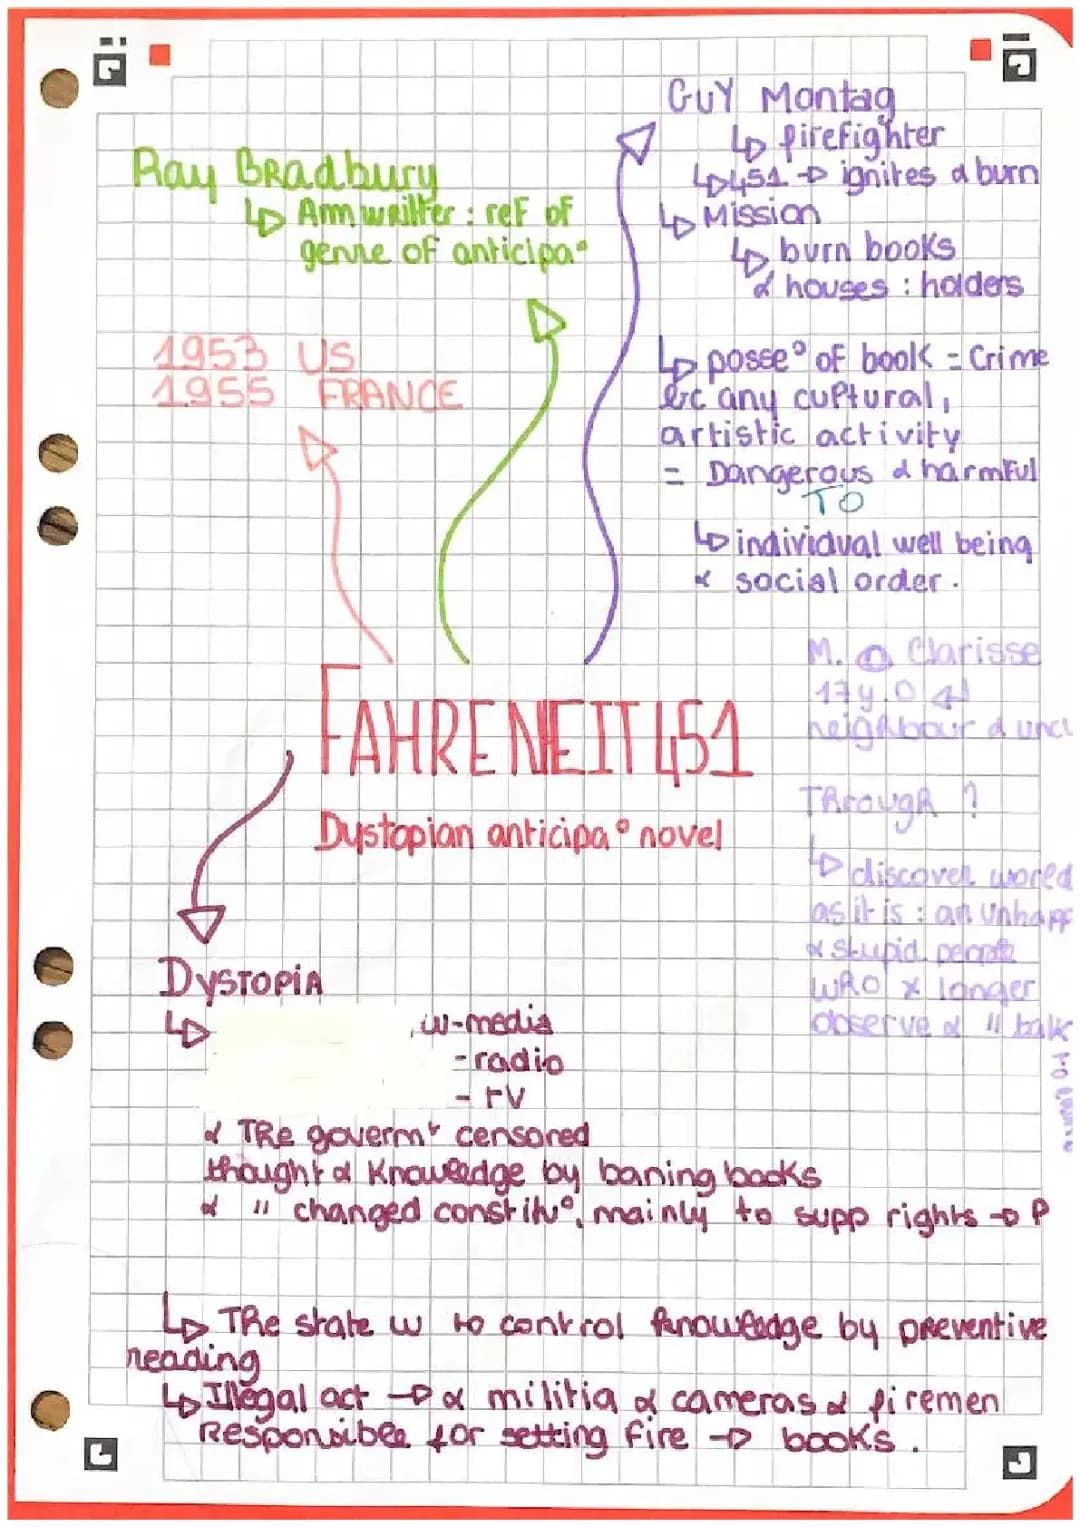 GUY Montag
↳ firefighter
↳ 451 → ignites & burn
↳ Mission
↳ burn books
& houses : holders
↳ posse° of book = Crime
bc any cultural,
artistic activity
= Dangerous & harmful
TO
↳ individual well being
& social order.
Ray Bradbury
↳ Am writter : ref of
genre of anticipa°
1953 US
1955 FRANCE
FAHRENEIT 451
Dystopian anticipa° novel
M. Clarisse
17 y.o
neighbour & uncl
Through ?
↳ discover world
as it is : an unhapp
& stupid people
who x longer
observe & " talk
to
DYSTOPIA
↳ w-media
- radio
- TV
& The governmt censored
thought & knowledge by baning books
& " changed constitu°, mainly to supp rights → P
↳ The state w to control knowledge by preventive
reading
↳ Illegal act → & militia & cameras & firemen
Responsible for setting fire → books.